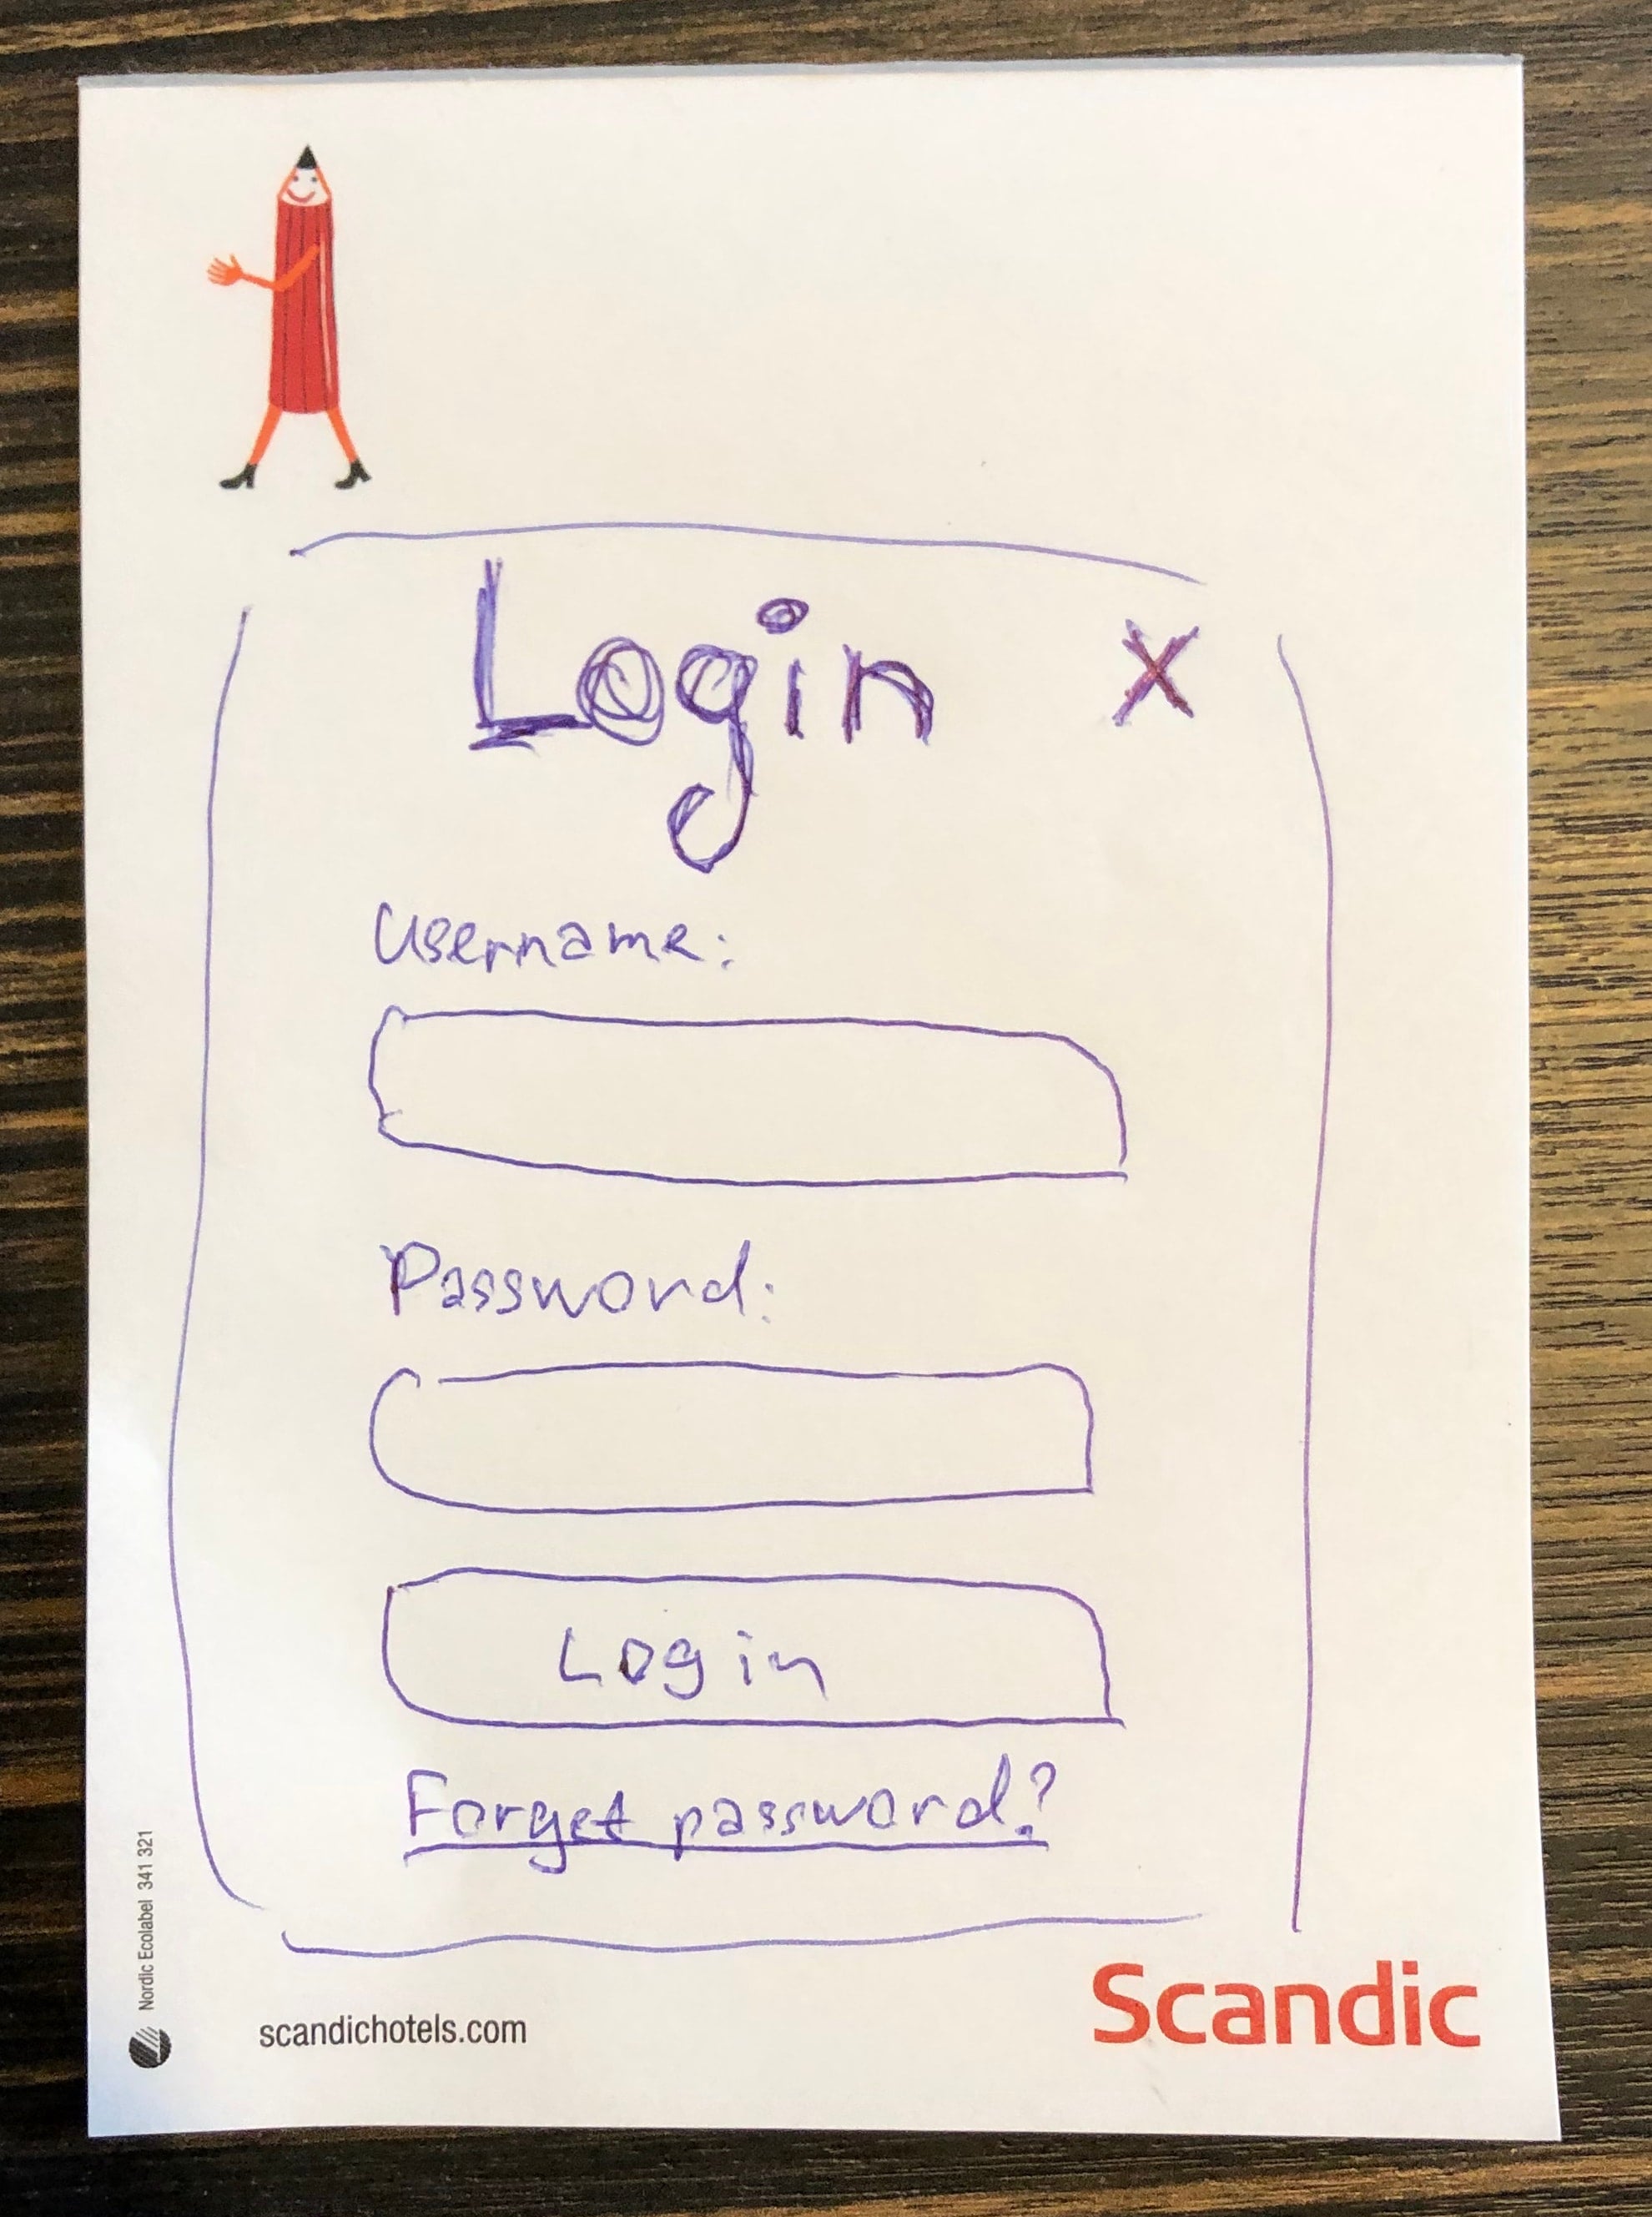 Login X
Username:
Password:
Login
Forget password?
Nordic Ecolabel 341 321
scandichotels.com
Scandic